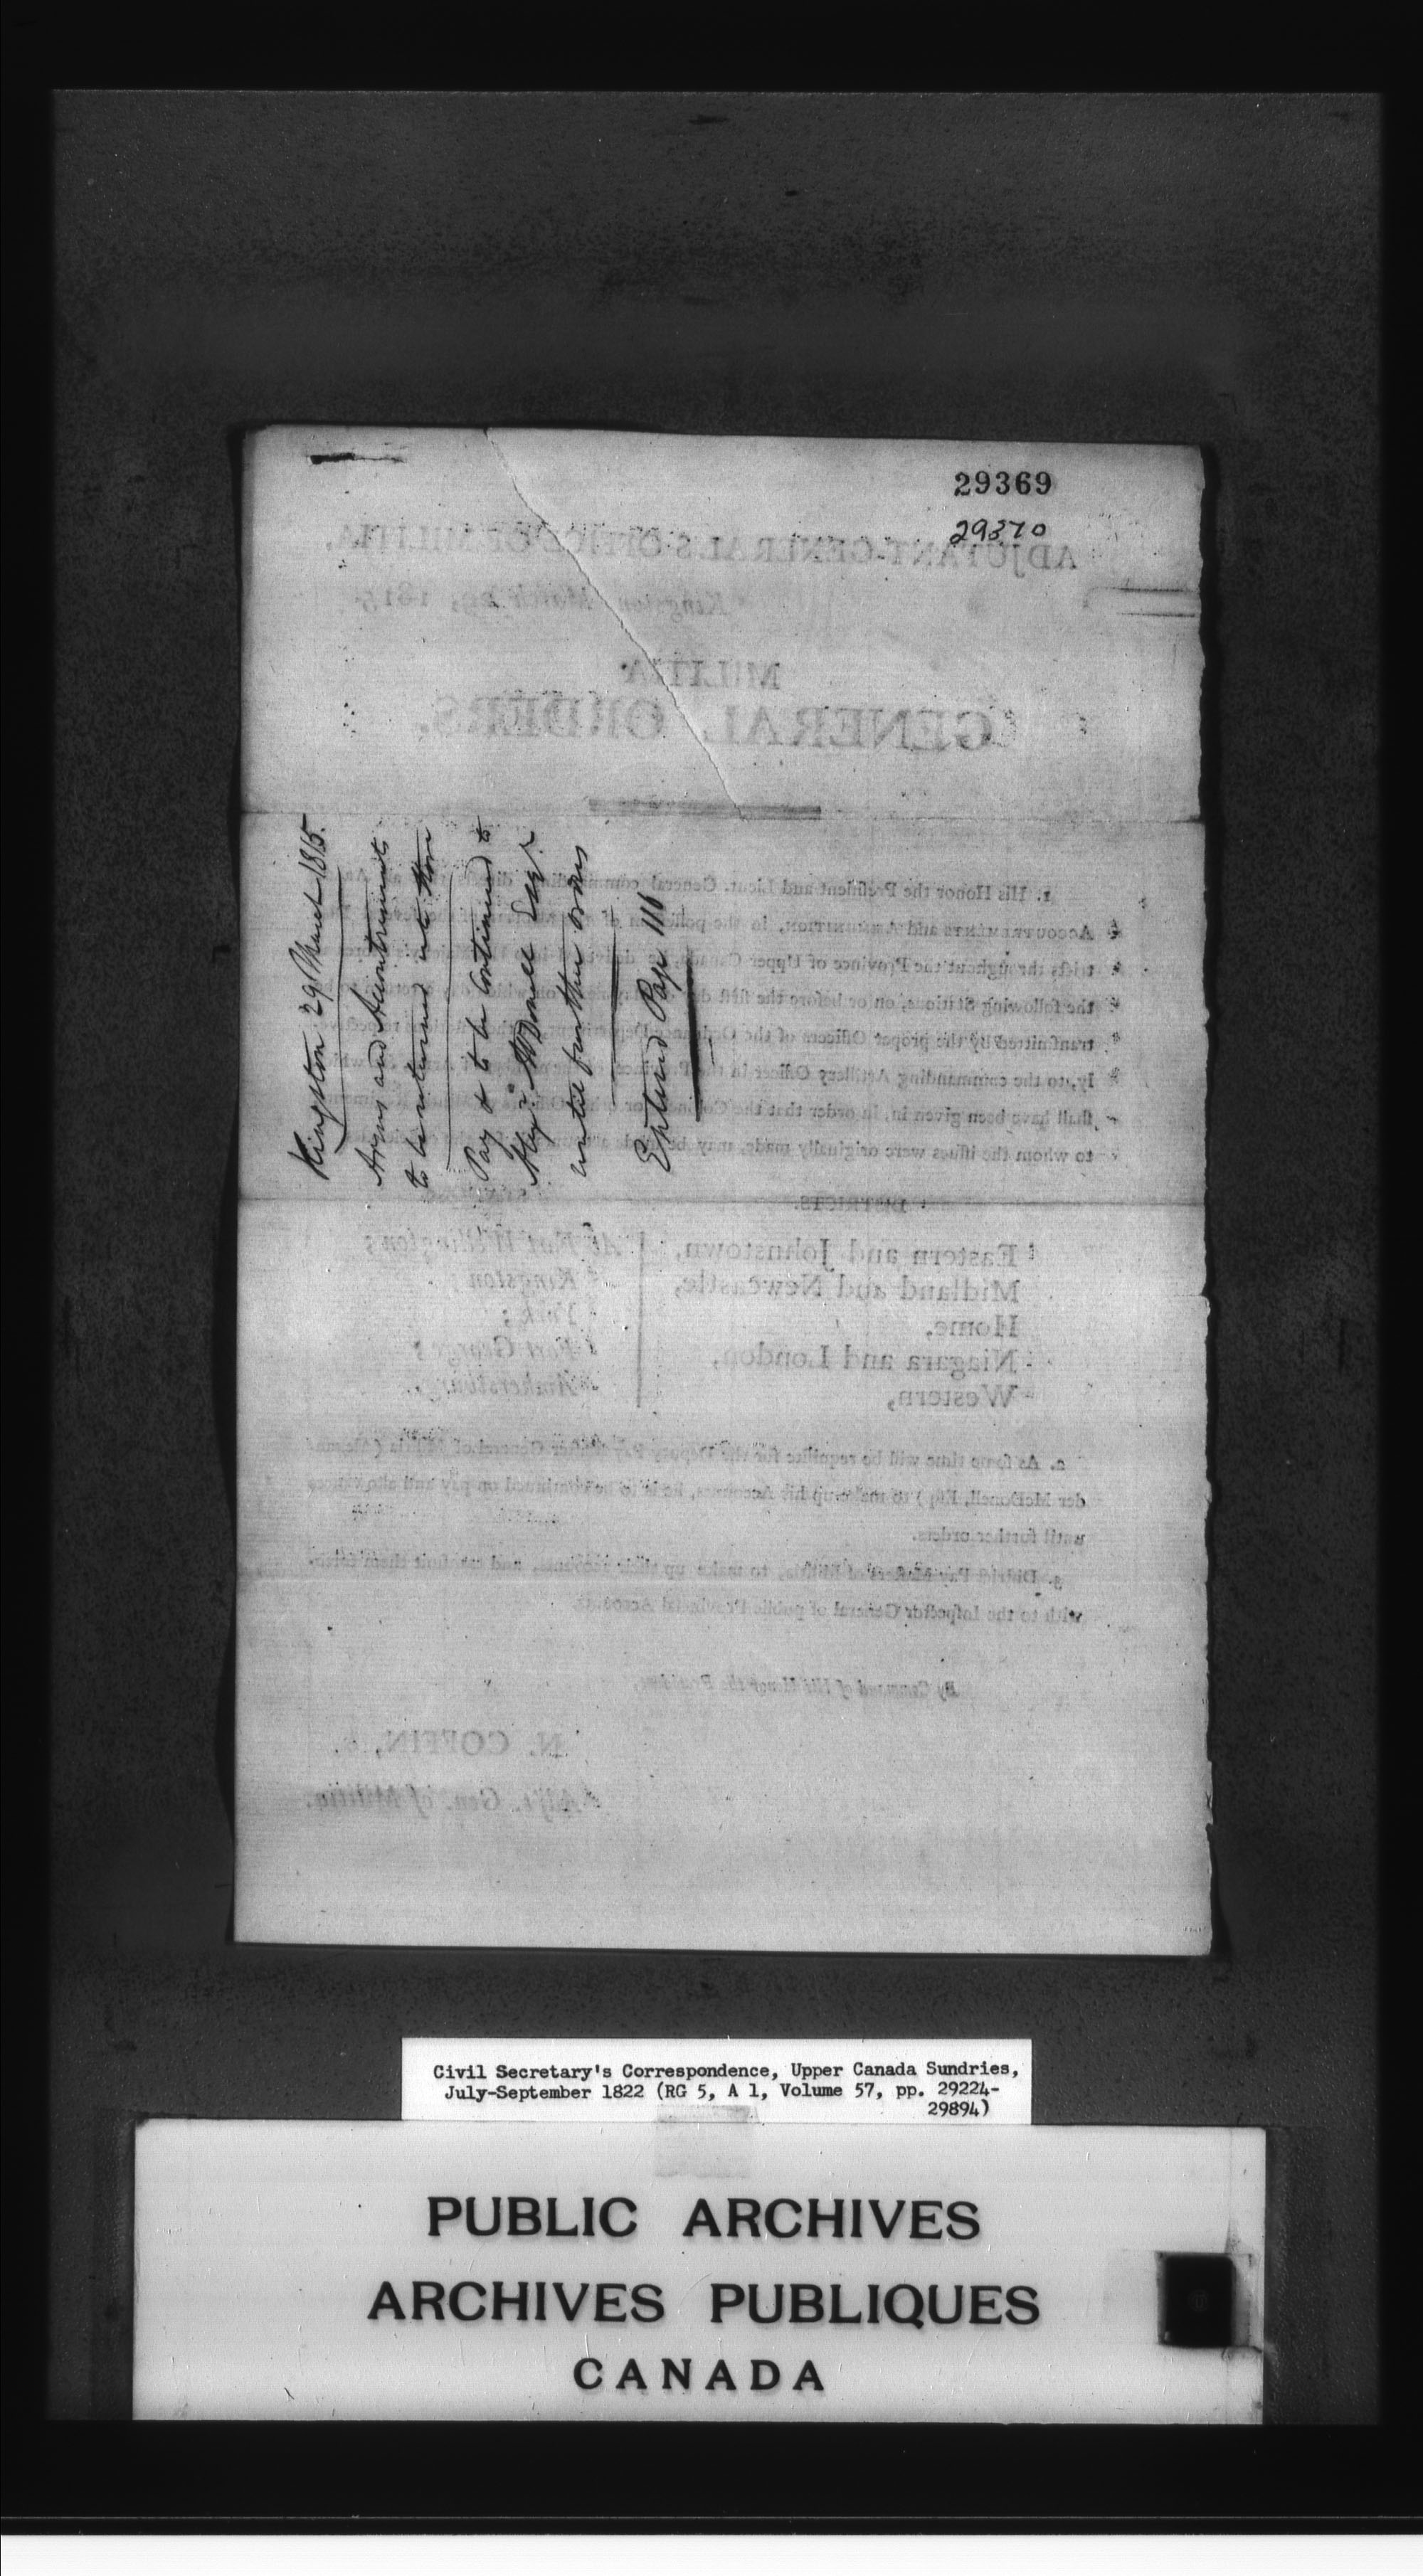 29369
29370
ADJUTANT GENERAL'S OFFICE OF MILITIA,
Kingston March 29, 1815.
MILITIA
GENERAL ORDERS.
Kingston 29 March 1815.
Arms and Accoutrements
to be returned into Store
Pay & to be continued to
Alexr. McDonell Esqr.
until further orders
Entered Page 116
1. His Honor the President and Lieut. General commanding directs
ACCOUTREMENTS and AMMUNITION, in the possession of
tricts throughout the Province of Upper Canada, be
the following Stations, on or before the first day
transmitted by the proper Officers of the Ordnance Department,
ly, to the commanding Artillery Officer in the
shall have been given in, in order that the
to whom the issues were originally made, may be
DISTRICTS.
Eastern and Johnstown, At Fort Wellington;
Midland and Newcastle, Kingston;
Home, York;
Niagara and London, Fort George;
Western, Amherstburg.
2. As some time will be requisite for the Deputy Pay Master General of Militia (Alexan-
der McDonell, Esq) to make up his Accounts, he is to be continued on pay and allowances
until further orders.
3. District Pay Masters of Militia, to make up their accounts, and transmit them forth-
with to the Inspector General of public Provincial Accounts.
By Command of His Honor the President,
N. COFFIN,
Adj't. Gen. of Militia.
Civil Secretary's Correspondence, Upper Canada Sundries,
July-September 1822 (RG 5, A 1, Volume 57, pp. 29224-
29894)
PUBLIC ARCHIVES
ARCHIVES PUBLIQUES
CANADA